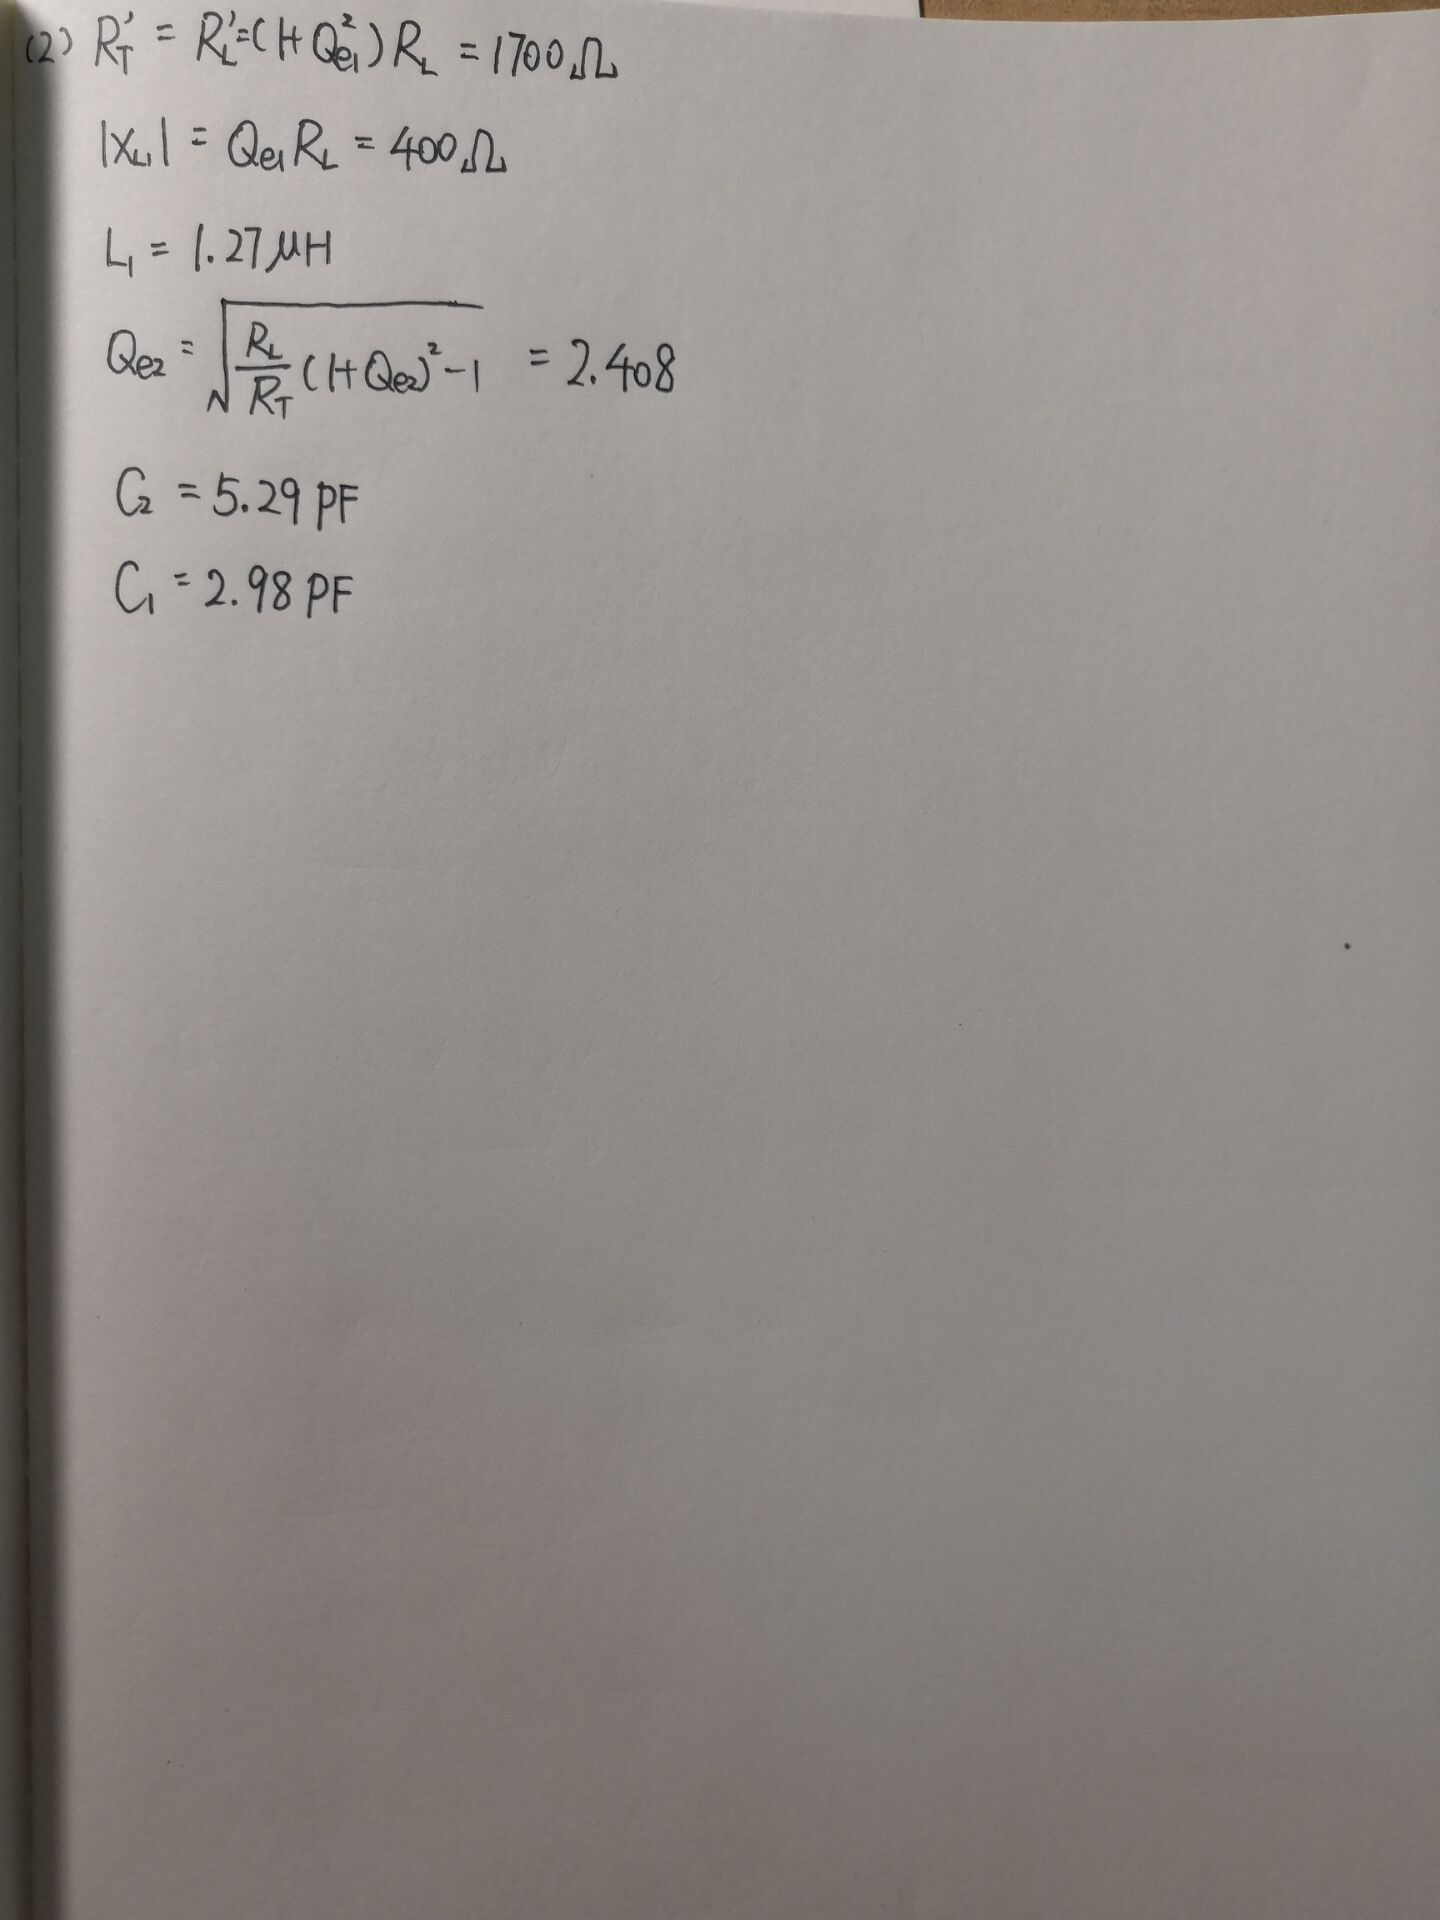 (2) R_T' = R_L' = (1+Q_{e1}^2) R_L = 1700Ω
|X_{L1}| = Q_{e1} R_L = 400Ω
L_1 = 1.27 μH
Q_{e2} = \sqrt{\frac{R_L}{R_T}(1+Q_{e2})^2-1} = 2.408
C_2 = 5.29 PF
C_1 = 2.98 PF